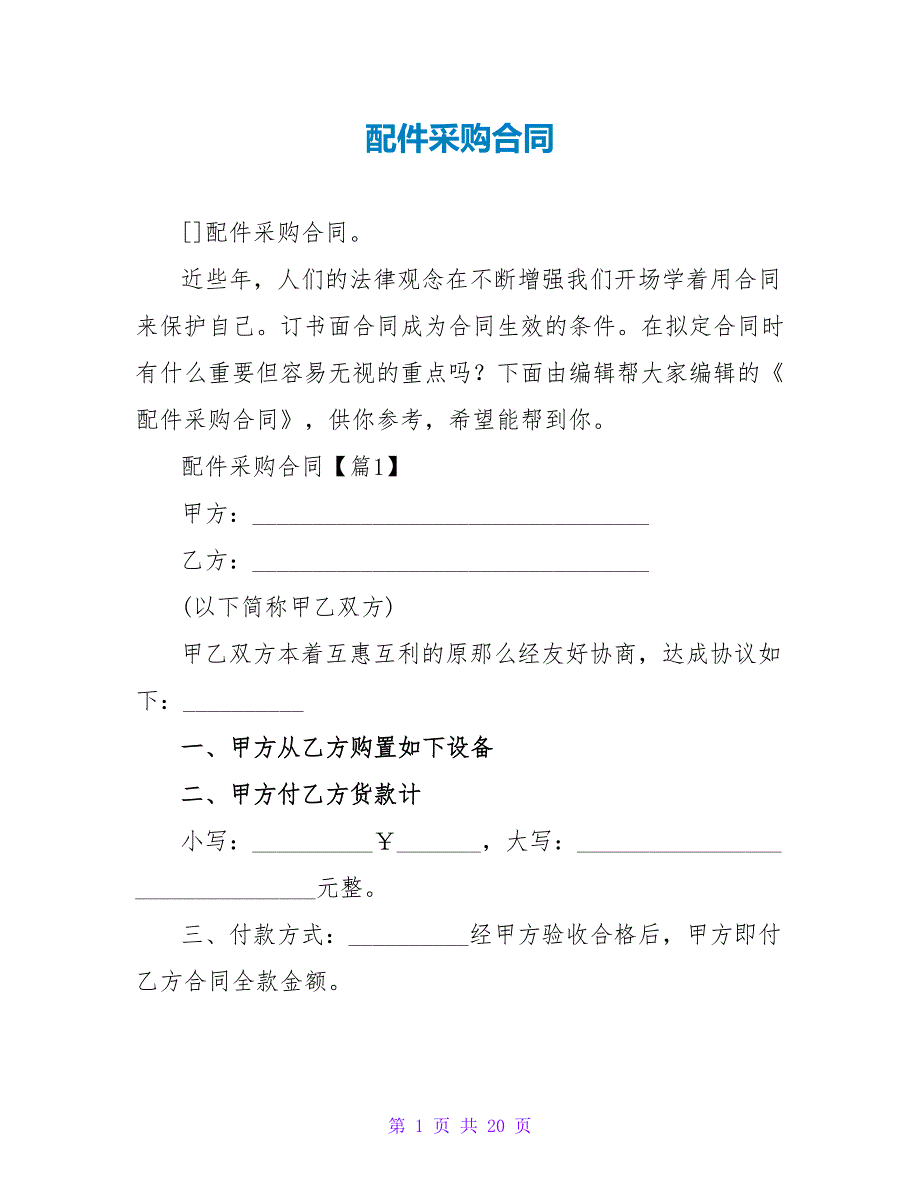 配件采购合同
[]配件采购合同。
近些年，人们的法律观念在不断增强我们开场学着用合同
来保护自己。订书面合同成为合同生效的条件。在拟定合同时
有什么重要但容易无视的重点吗？下面由编辑帮大家编辑的《
配件采购合同》，供你参考，希望能帮到你。
配件采购合同【篇1】
甲方：_________________________________
乙方：_________________________________
(以下简称甲乙双方)
甲乙双方本着互惠互利的原那么经友好协商，达成协议如
下：__________
一、甲方从乙方购置如下设备
二、甲方付乙方货款计
小写：__________￥_______，大写：_________________
_______________元整。
三、付款方式：__________经甲方验收合格后，甲方即付
乙方合同全款金额。
第 1 页 共 20 页